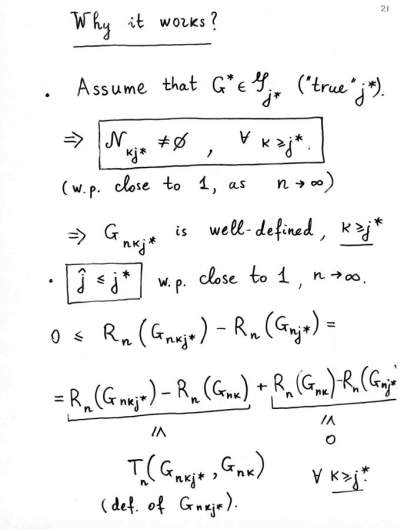 21
Why it works?
• Assume that G* ∈ 𝒢_{j*} ("true" j*).
⇒ 𝒩_{kj*} ≠ ∅ , ∀ k ≥ j*.
(w.p. close to 1, as n → ∞)
⇒ G_{nkj*} is well-defined, k ≥ j*
• ĵ ≤ j* w.p. close to 1, n → ∞.
0 ≤ R_n(G_{nkj*}) − R_n(G_{nj*}) =
= R_n(G_{nkj*}) − R_n(G_{nk}) + R_n(G_{nk}) − R_n(G_{nj*}
≤ ≤
T_n(G_{nkj*}, G_{nk}) 0
(def. of G_{nkj*}). ∀ k ≥ j*.